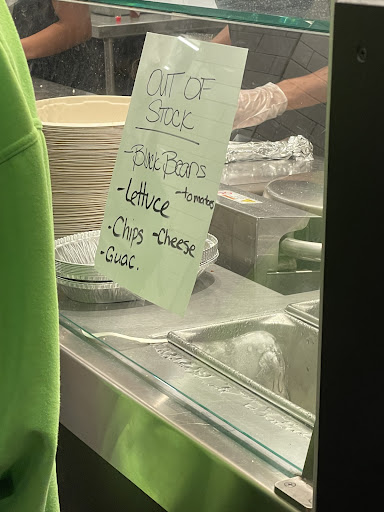 OUT OF
STOCK
-Blck Beans
-Lettuce -tomatoes
-Chips -Cheese
-Guac.